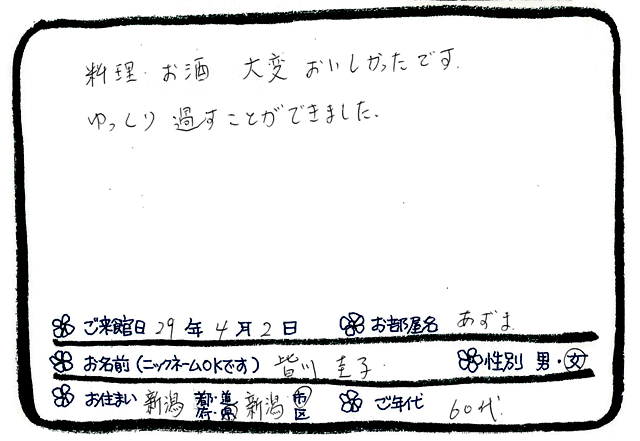 料理・お酒 大変おいしかったです.
ゆっくり過すことができました.
ご来館日 29年4月2日 お部屋名 あずま
お名前(ニックネームOKです) 皆川 圭子 性別 男・女
お住まい 新潟 都・道・府・県 新潟 市・区 ご年代 60代